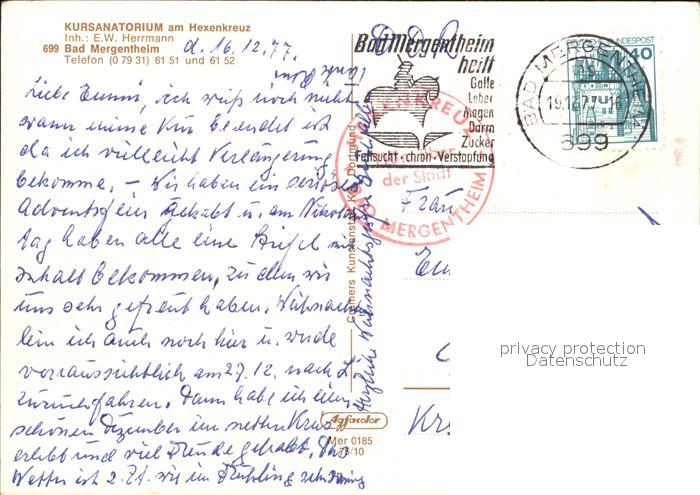 KURSANATORIUM am Hexenkreuz
Inh.: E.W. Herrmann
699 Bad Mergentheim
Telefon (0 79 31) 61 51 und 61 52
d. 16.12.77.
Liebe Emmi, ich weiß noch nicht
wann meine Kur beendet ist
da ich vielleicht Verlängerung
bekomme. – Wir haben ein
Adventsfeier gehabt u. am Nikolaus
tag haben alle eine Stiefel mit
Inhalt bekommen, zu dem wir
uns sehr gefreut haben. Weihnach
ten ich auch noch hier u. werde
voraussichtlich am 27.12. nach
zurückfahren. Dann habe ich ein
schönen Dezember im netten Kreis
erlebt und viel Freude gehabt. Das
Wetter ist z. Zt. wie im Frühling
Herzliche Weihnachtsgrüße
DDR
Bad Mergentheim
heilt
Galle
Leber
Magen
Darm
Zucker
Fettsucht - chron. Verstopfung
BAD MERGENTHEIM
699
BUNDESPOST
40
HEXENKREUZ
der Stadt
BAD MERGENTHEIM
Frau
Cramers Kunstanstalt KG Dortmund
Agfacolor
Mer 0185
privacy protection
Datenschutz